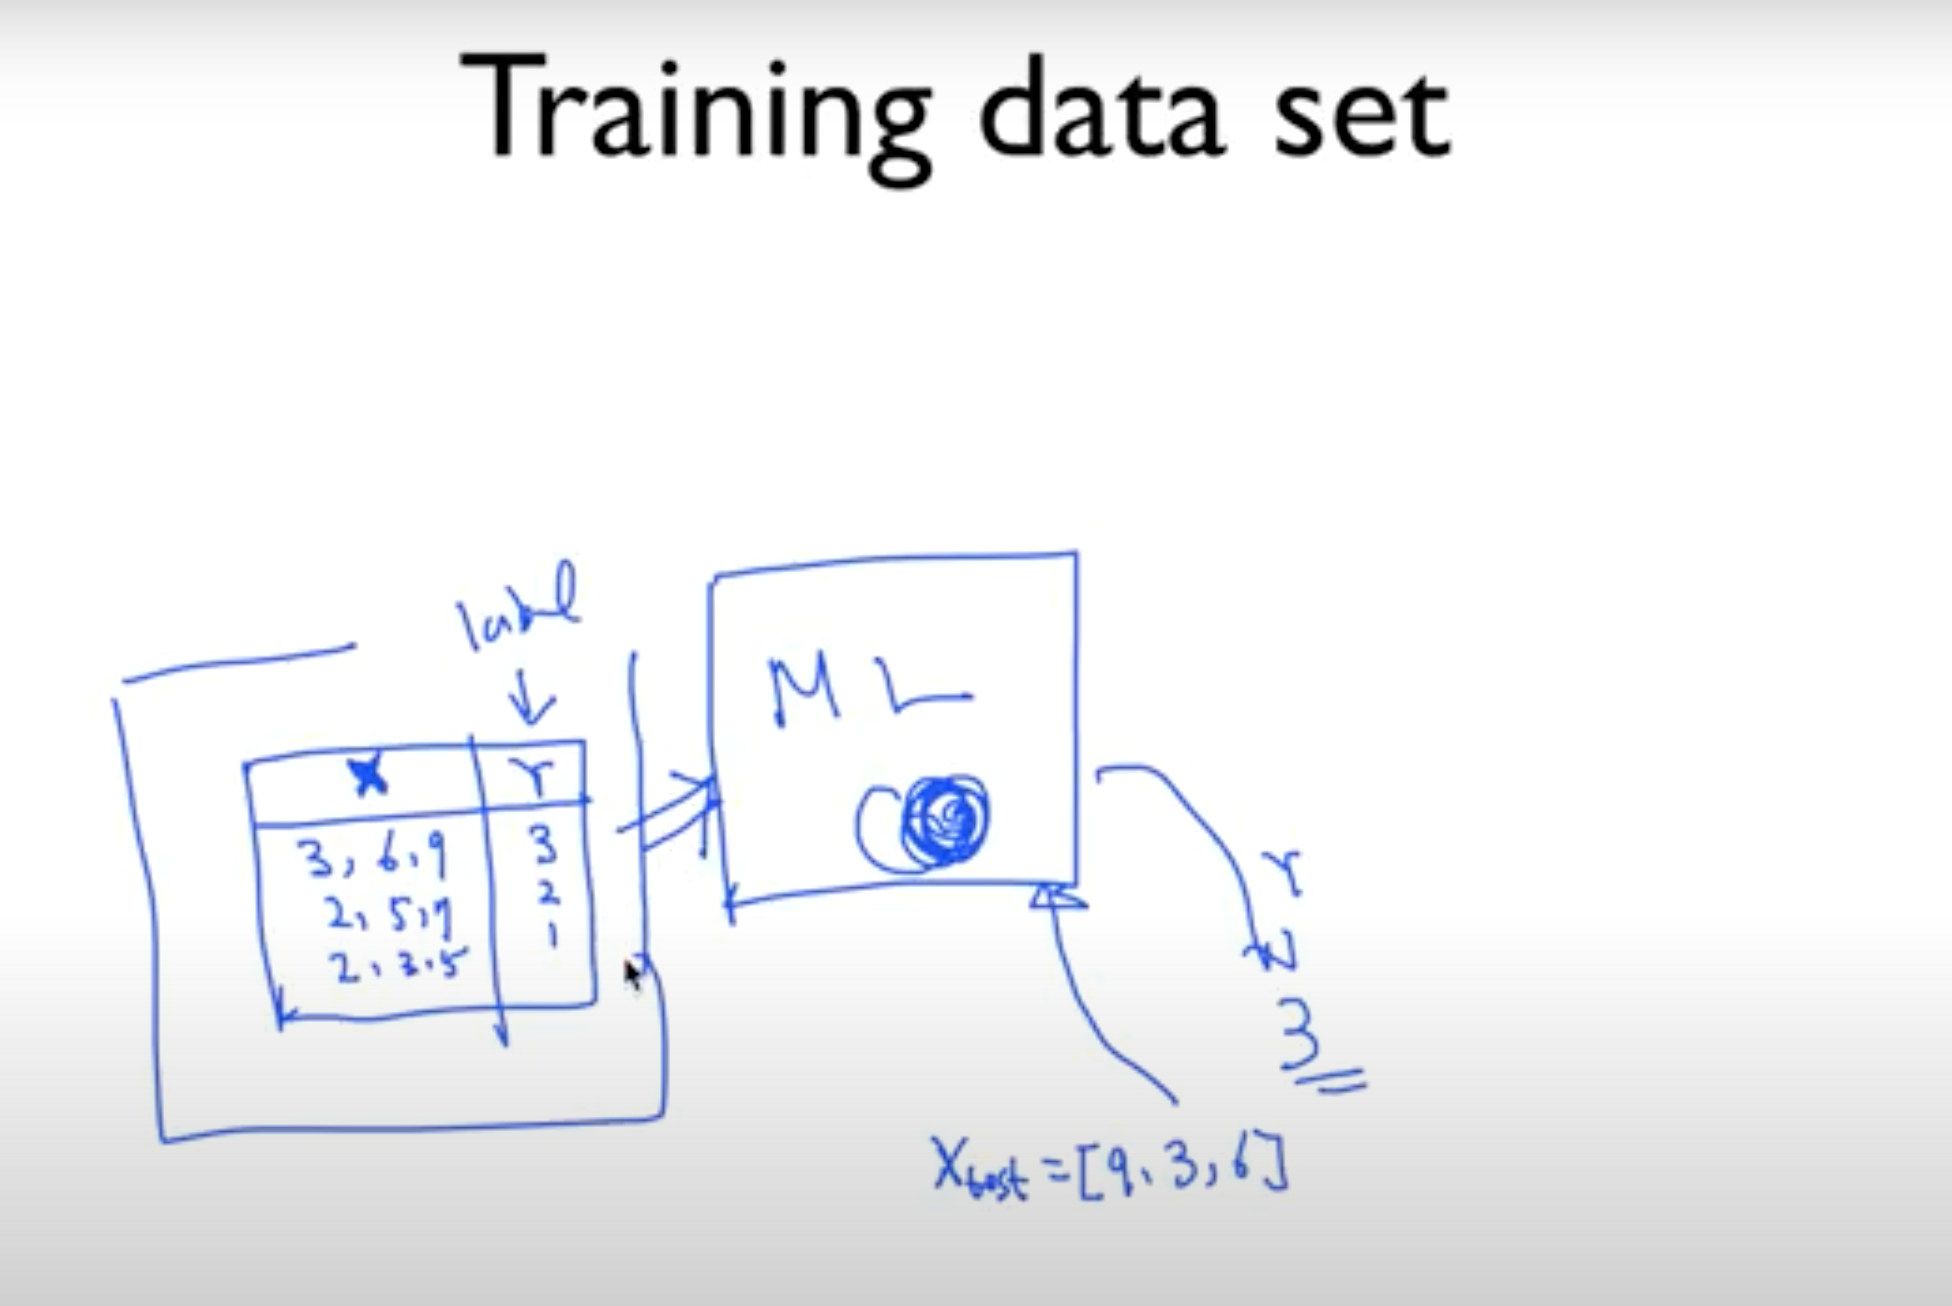 Training data set
label
X Y
3, 6, 9 3
2, 5, 7 2
2, 3, 5 1
ML
Y
3
Xtest = [9, 3, 6]